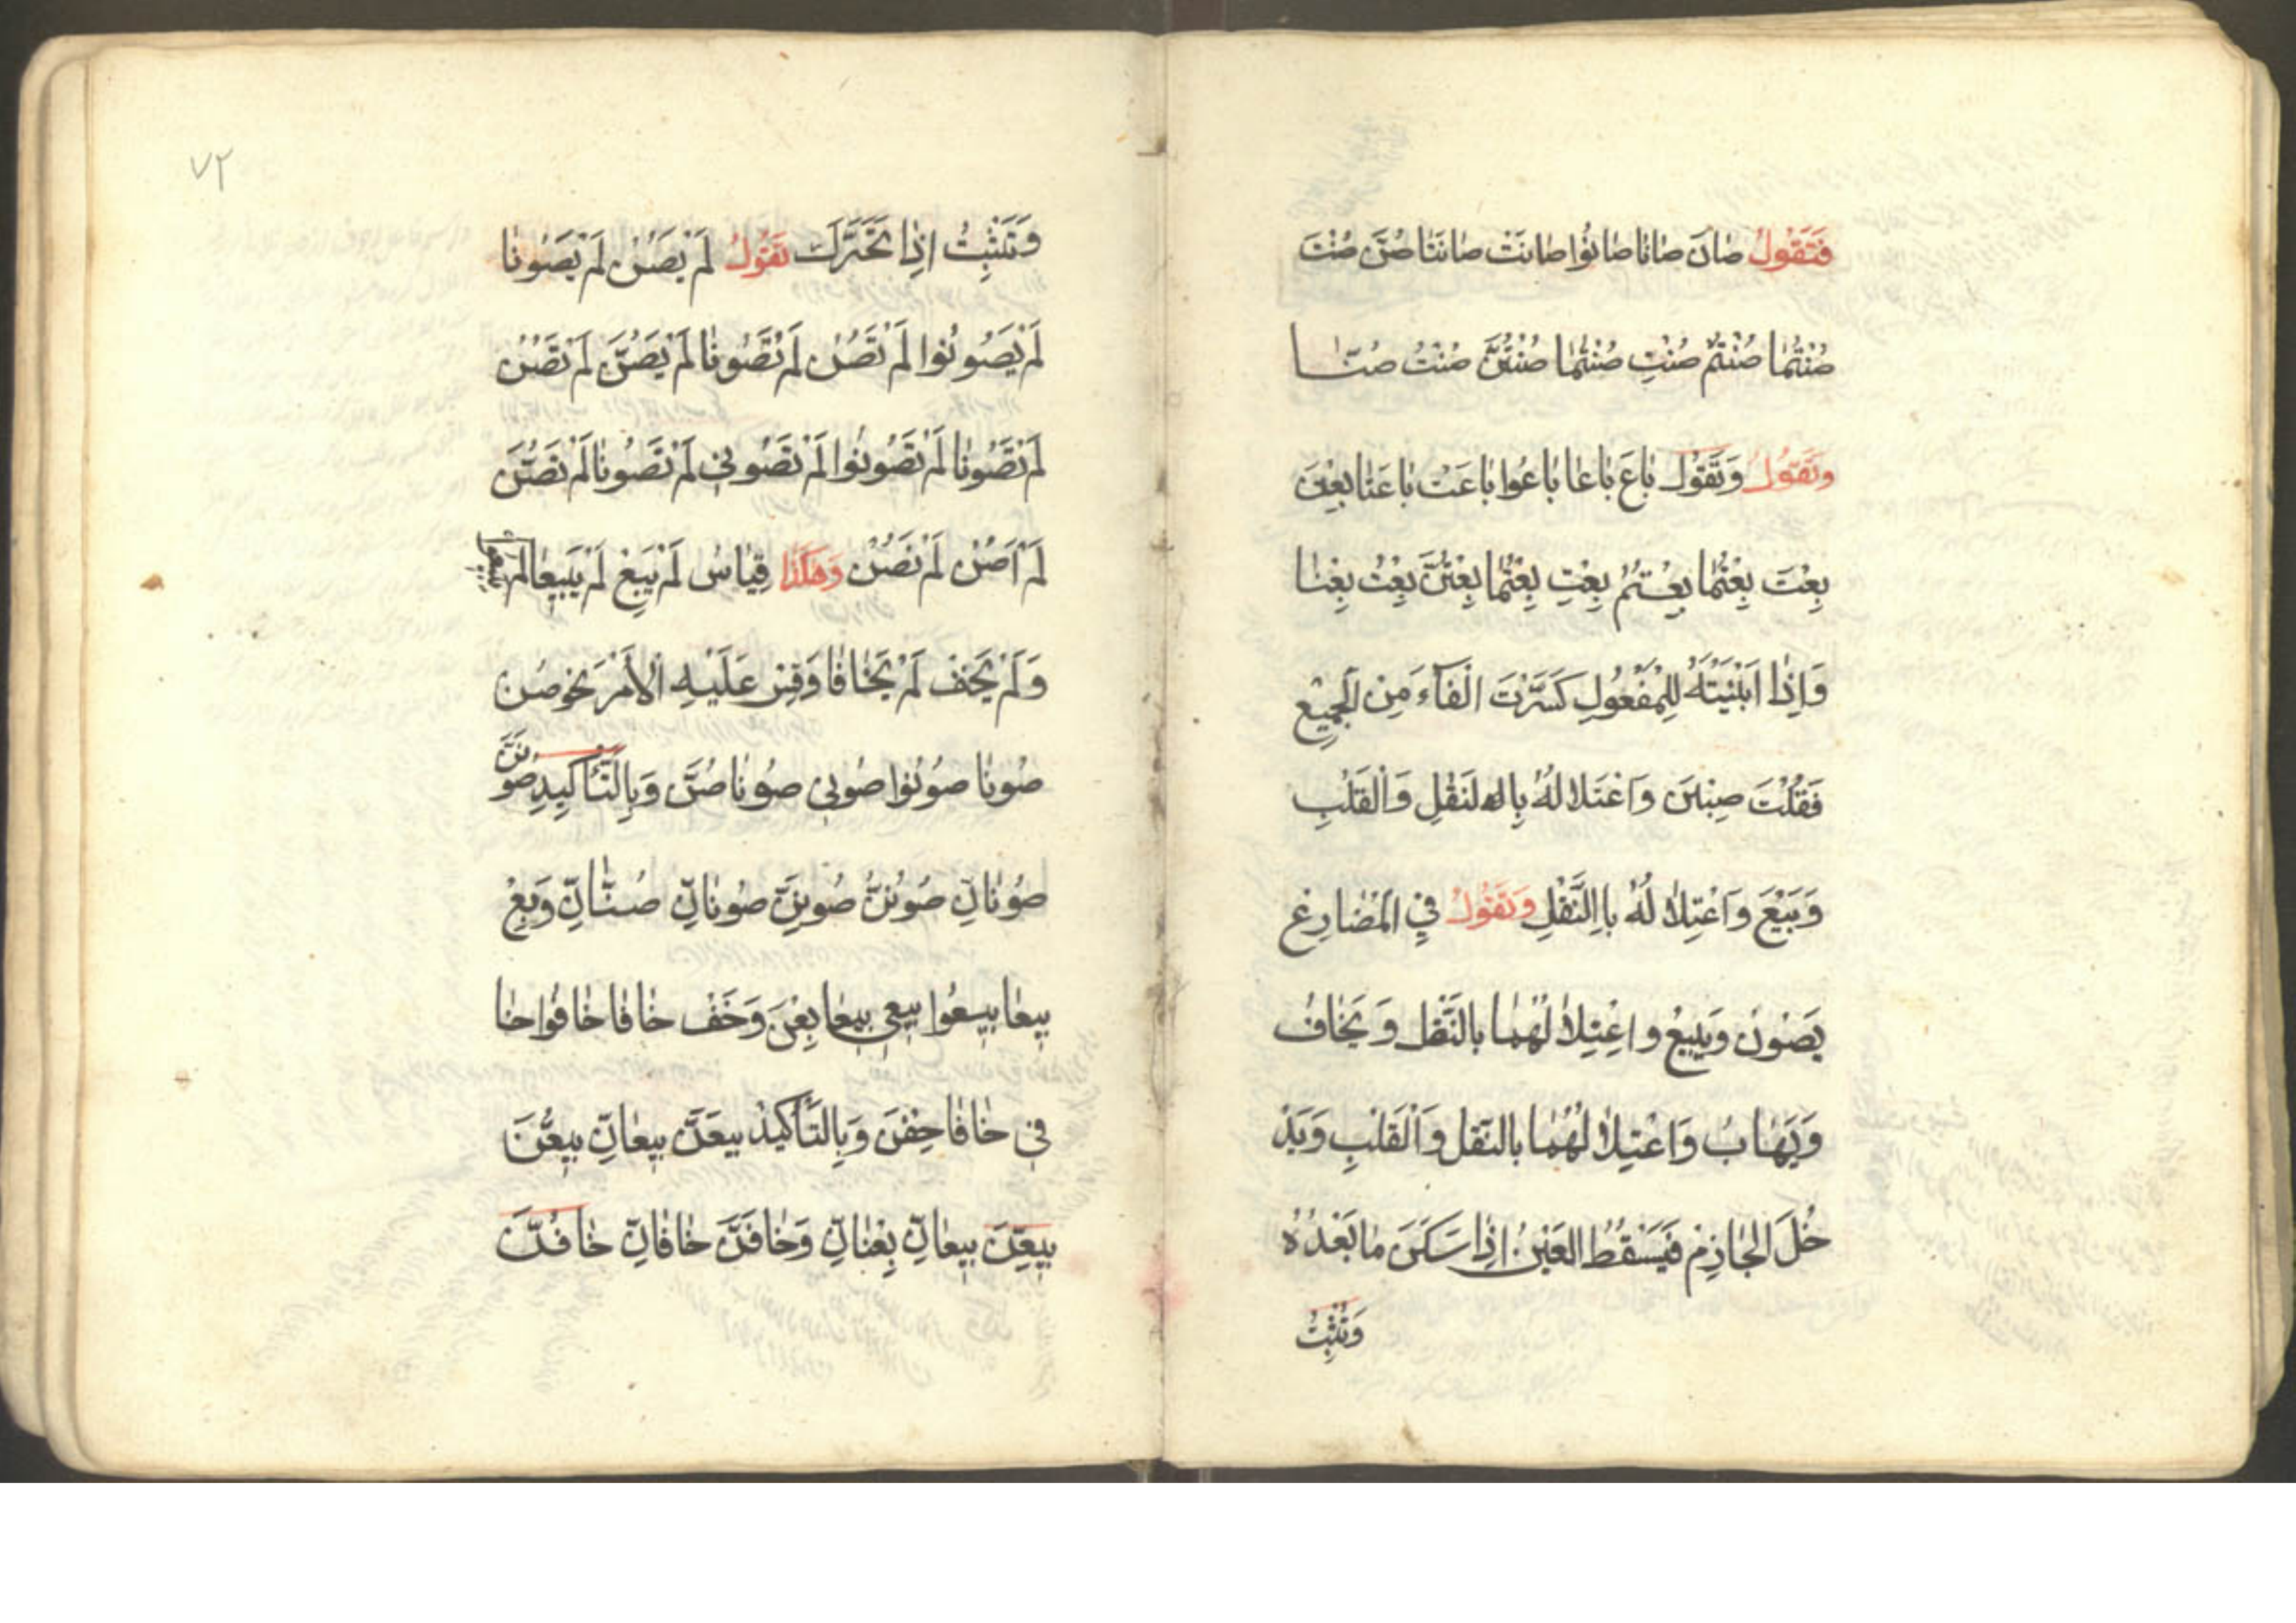 فَتَقُولُ صٰانَ صٰانٰا صٰانُوا صٰانَتْ صٰانَتٰا صُنَّ صُنْتَ
صُنْتُمٰا صُنْتُمْ صُنْتِ صُنْتُمٰا صُنْتُنَّ صُنْتُ صُنّٰا
وتَقُولُ وَتَقُولُ بٰاعَ بٰاعٰا بٰاعُوا بٰاعَتْ بٰاعَتٰا بِعْنَ
بِعْتَ بِعْتُمٰا بِعْتُمْ بِعْتِ بِعْتُمٰا بِعْتُنَّ بِعْتُ بِعْنٰا
وَاِذٰا اَبْنَيْتَهُ لِلْمَفْعُولِ كَسَّرْتَ الْفَآءَ مِنَ الْجَمِيْعِ
فَقُلْتَ صِيْنَ وَاعْتَلالُهُ بِالنَقْلِ وَالْقَلْبِ
وَبَيْعَ وَاعْتِلالُهُ بِالنَّقْلِ وَتَقُولُ فِي الْمُضٰارِعِ
يَصُونُ وَيَبِيعُ واعْتِلالُهُمٰا بالنَّقْلِ وَيَخٰافُ
وَيَهٰابُ وَاعْتِلالُهُمٰا بالنَّقْلِ وَالْقَلْبِ وَيَدْ
خُلَ الْجٰازِمُ فَيَسْقُطُ العَيْنُ اِذٰا سَكَنَ مٰا بَعْدُهُ
وَتُثْبِتُ
٧٢
وَتَثْبِتُ اِذٰا تَحَرَّكَ تَقُولُ لَمْ يَصُنْ لَمْ يَصُونٰا
لَمْ يَصُونُوا لَمْ تَصُنْ لَمْ تَصُونٰا لَمْ يَصُنَّ لَمْ تَصُنْ
لَمْ تَصُونٰا لَمْ تَصُونُوا لَمْ تَصُونِي لَمْ تَصُونٰا لَمْ تَصُنَّ
لَمْ اَصُنْ لَمْ نَصُنْ وَهٰكَذٰا قِيٰاسُ لَمْ يَبِعْ لَمْ يَبِيعٰا لَمْ يبيعوا
وَلَمْ يَخَفْ لَمْ يَخٰافٰا وَقِسْ عَلَيْهِ الْاَمْرَ نَحْوَ صُنْ
صُونٰا صُونُوا صُونِي صُونٰا صُنَّ وَبِالتَّأكِيدِ صُونَنَّ
صُونٰانِّ صُونُنَّ صُونِنَّ صُونٰانِّ صُنّٰانِّ وَبِعْ
بِيعٰا بِيعُوا بِيعِي بِيعٰا بِعْنَ وَخَفْ خٰافٰا خٰافُوا خٰا
فِي خٰافٰا خِفْنَ وَبِالتَّأكِيدْ بِيعَنَّ بِيعٰانِّ بِيعُنَّ
بِيعِنَّ بِيعٰانِّ بِعْنٰانِّ وَخٰافَنَّ خٰافٰانِّ خٰافُنَّ